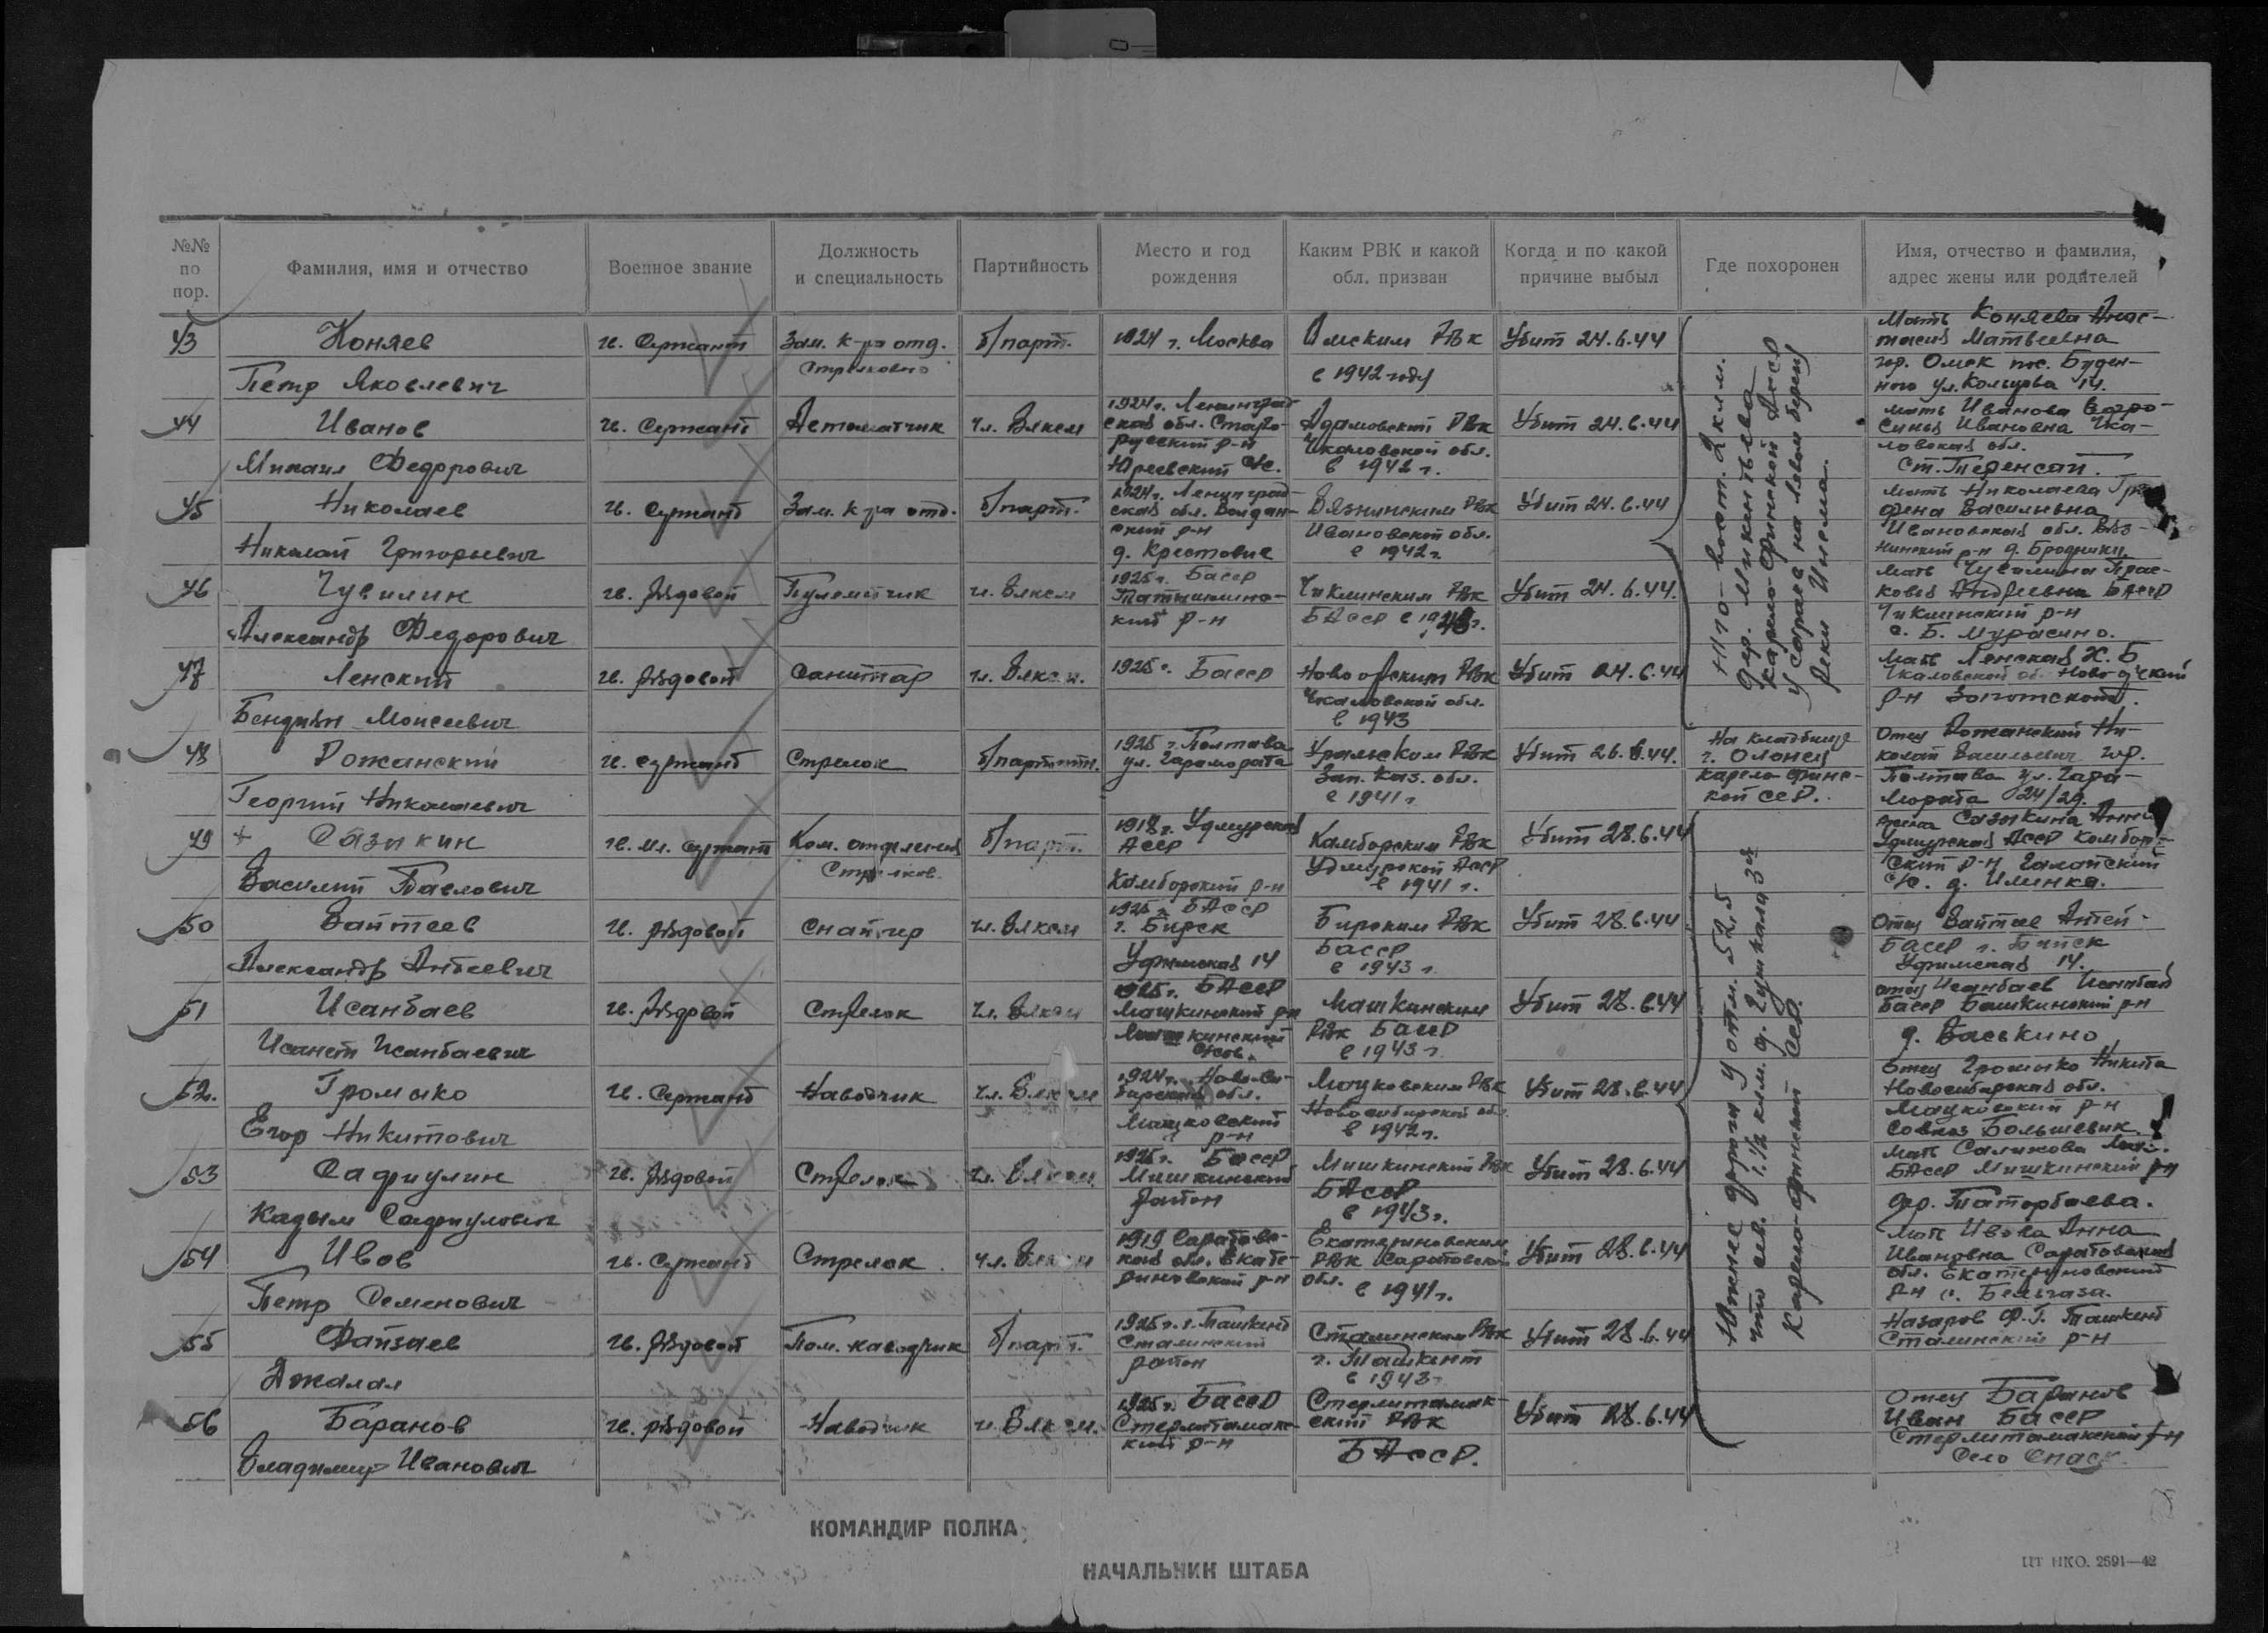 №№ по пор.
Фамилия, имя и отчество
Военное звание
Должность и специальность
Партийность
Место и год рождения
Каким РВК и какой обл. призван
Когда и по какой причине выбыл
Где похоронен
Имя, отчество и фамилия, адрес жены или родителей
43
Коняев
Петр Яковлевич
гв. Сержант
Зам. к-ра отд.
Стрелкового
б/парт.
1924 г. Москва
Омским РВк
в 1942 году
Убит 24.6.44
Мать Коняева Анас-
тасия Матвеевна
гор. Омск пос. Буден-
ного ул. Кольцова 14.
44
Иванов
Михаил Федорович
гв. Сержант
Автоматчик
чл. Влксм
1924 г. Ленинград
ская обл. Старо-
русский р-н
Юрьевский с/с.
Адамовский РВк
Чкаловской обл.
в 1942 г.
Убит 24.6.44
мать Иванова
Ивановна Чка-
ловская обл.
ст. Теренсай.
45
Николаев
Николай Григорьевич
гв. Сержант
Зам. к-ра отд.
б/парт.
1924 г. Ленинград-
ская обл.
ский р-н
д. Крестовие
Вязниским РВк
Ивановской обл.
в 1942 г.
Убит 24.6.44
мать Николаева
Васильевна
Ивановская обл. Вяз-
никский р-н д. Бродники.
46
Чувилин
Александр Федорович
гв. Рядовой
Пулеметчик
чл. Влксм
1925 г. Басср
р-н
РВк
БАсср в
Убит 24.6.44.
мать Чувилина Прас-
ковья Андреевна БАССР
р-н
с. Б. Мурасино.
47
Ленский
Моисеевич
гв. Рядовой
Санитар
чл. Влксм.
1925 г. Басср
Новоорским РВк
Чкаловской обл.
в 1943
Убит 24.6.44
мать Ленская Х. Б
Чкаловской об. Ново
р-н
Н110-вост. 2 клм.
дер. Микентьева
Карело-Финской Асср
у сарая на левом берегу
реки Инсма.
48
Рожанский
Георгий Николаевич
гв. сержант
Стрелок
1925 г. Полтава
ул.
Уральском РВк
Зап. Каз. обл.
в 1941 г
Убит 26.6.44.
На кладбище
г. Олонец
Карело Финс-
кой сср.
Отец Рожанский Ни-
колай Васильевич гор.
Полтава ул.
24/29.
49
Сазыкин
Василий Павлович
гв. мл. сержант
Ком. отделения
Стрелков.
б/парт.
1918 г. Удмурская
Асср
Камборский р-н
Камборским РВк
Удмурской Асср
в 1941 г.
Убит 28.6.44
жена Сазыкина Анна
Удмурская Асср Камбор-
ский р-н
с/с. д. Илинка.
50
Вайтеев
Александр Антеевич
гв. рядовой
Снайпер
чл. Влксм
1925 г. БАсср
г. Бирск
Уфимская 14
Бирским РВк
Басср
в 1943 г.
Убит 28.6.44
Отец Вайтеев Антей-
Басср г.
Уфимская 14.
51
Исанбаев
Исанбаевич
гв. Рядовой
Стрелок
чл. Влксм
1925 г. БАсср
Машкинский р-н
Машкинским
РВк Басср
в 1943 г.
Убит 28.6.44
отец Исанбаев
Басср Башкинский р-н
д. Баськино
52.
Громыко
Егор Никитович
гв. Сержант
Наводчик
чл. Влксм
1924 г. Ново-Си-
бирская обл.
Мошковский
р-н
Мошковским РВк
Новосибирской обл.
в 1942 г.
Убит 28.6.44
Отец Громыко Никита
Новосибирская обл.
Мошковский р-н
Совхоз Большевик
53
Сафиулин
Кадым Сафиулович
гв. Рядовой
Стрелок
чл. Влксм
1925 г. Басср
Мишкинский
район
Мишкинский РВк
БАсср
в 1943 г.
Убит 28.6.44
мать Салихова
БАсср Мишкинский р-н
дер. Таторбаева.
54
Ивов
Петр Семенович
гв. Сержант
Стрелок
чл. Влксм
1919 Саратовс-
кая обл. Екате-
риновский р-н
Екатериновским
РВк Саратовской
обл. в 1941 г.
Убит 28.6.44
мать Ивова Анна
Ивановна Саратовская
обл. Екатериновский
р-н с.
55
Файзаев
Джалал
гв. Рядовой
Пом. наводчик
б/парт.
1925 г. г. Ташкент
Сталинский
район
Сталинским РВк
г. Ташкент
в 1943
Убит 28.6.44
Назаров Ф. Г. Ташкент
Сталинский р-н
56
Баранов
Владимир Иванович
гв. рядовой
Наводчик
чл. Влксм.
1925 г. Басср
Стерлитамакс-
кий р-н
Стерлитамак-
ский РВк
БАССР.
Убит 28.6.44
Отец Баранов
Иван Басср
Стерлитамакский р-н
Село Спасск.
Южнее дороги у отм. 52,5
что сев. 1.1/2 клм. д.
Карело-Финской сср.
КОМАНДИР ПОЛКА
НАЧАЛЬНИК ШТАБА
ЦТ НКО. 2591—42